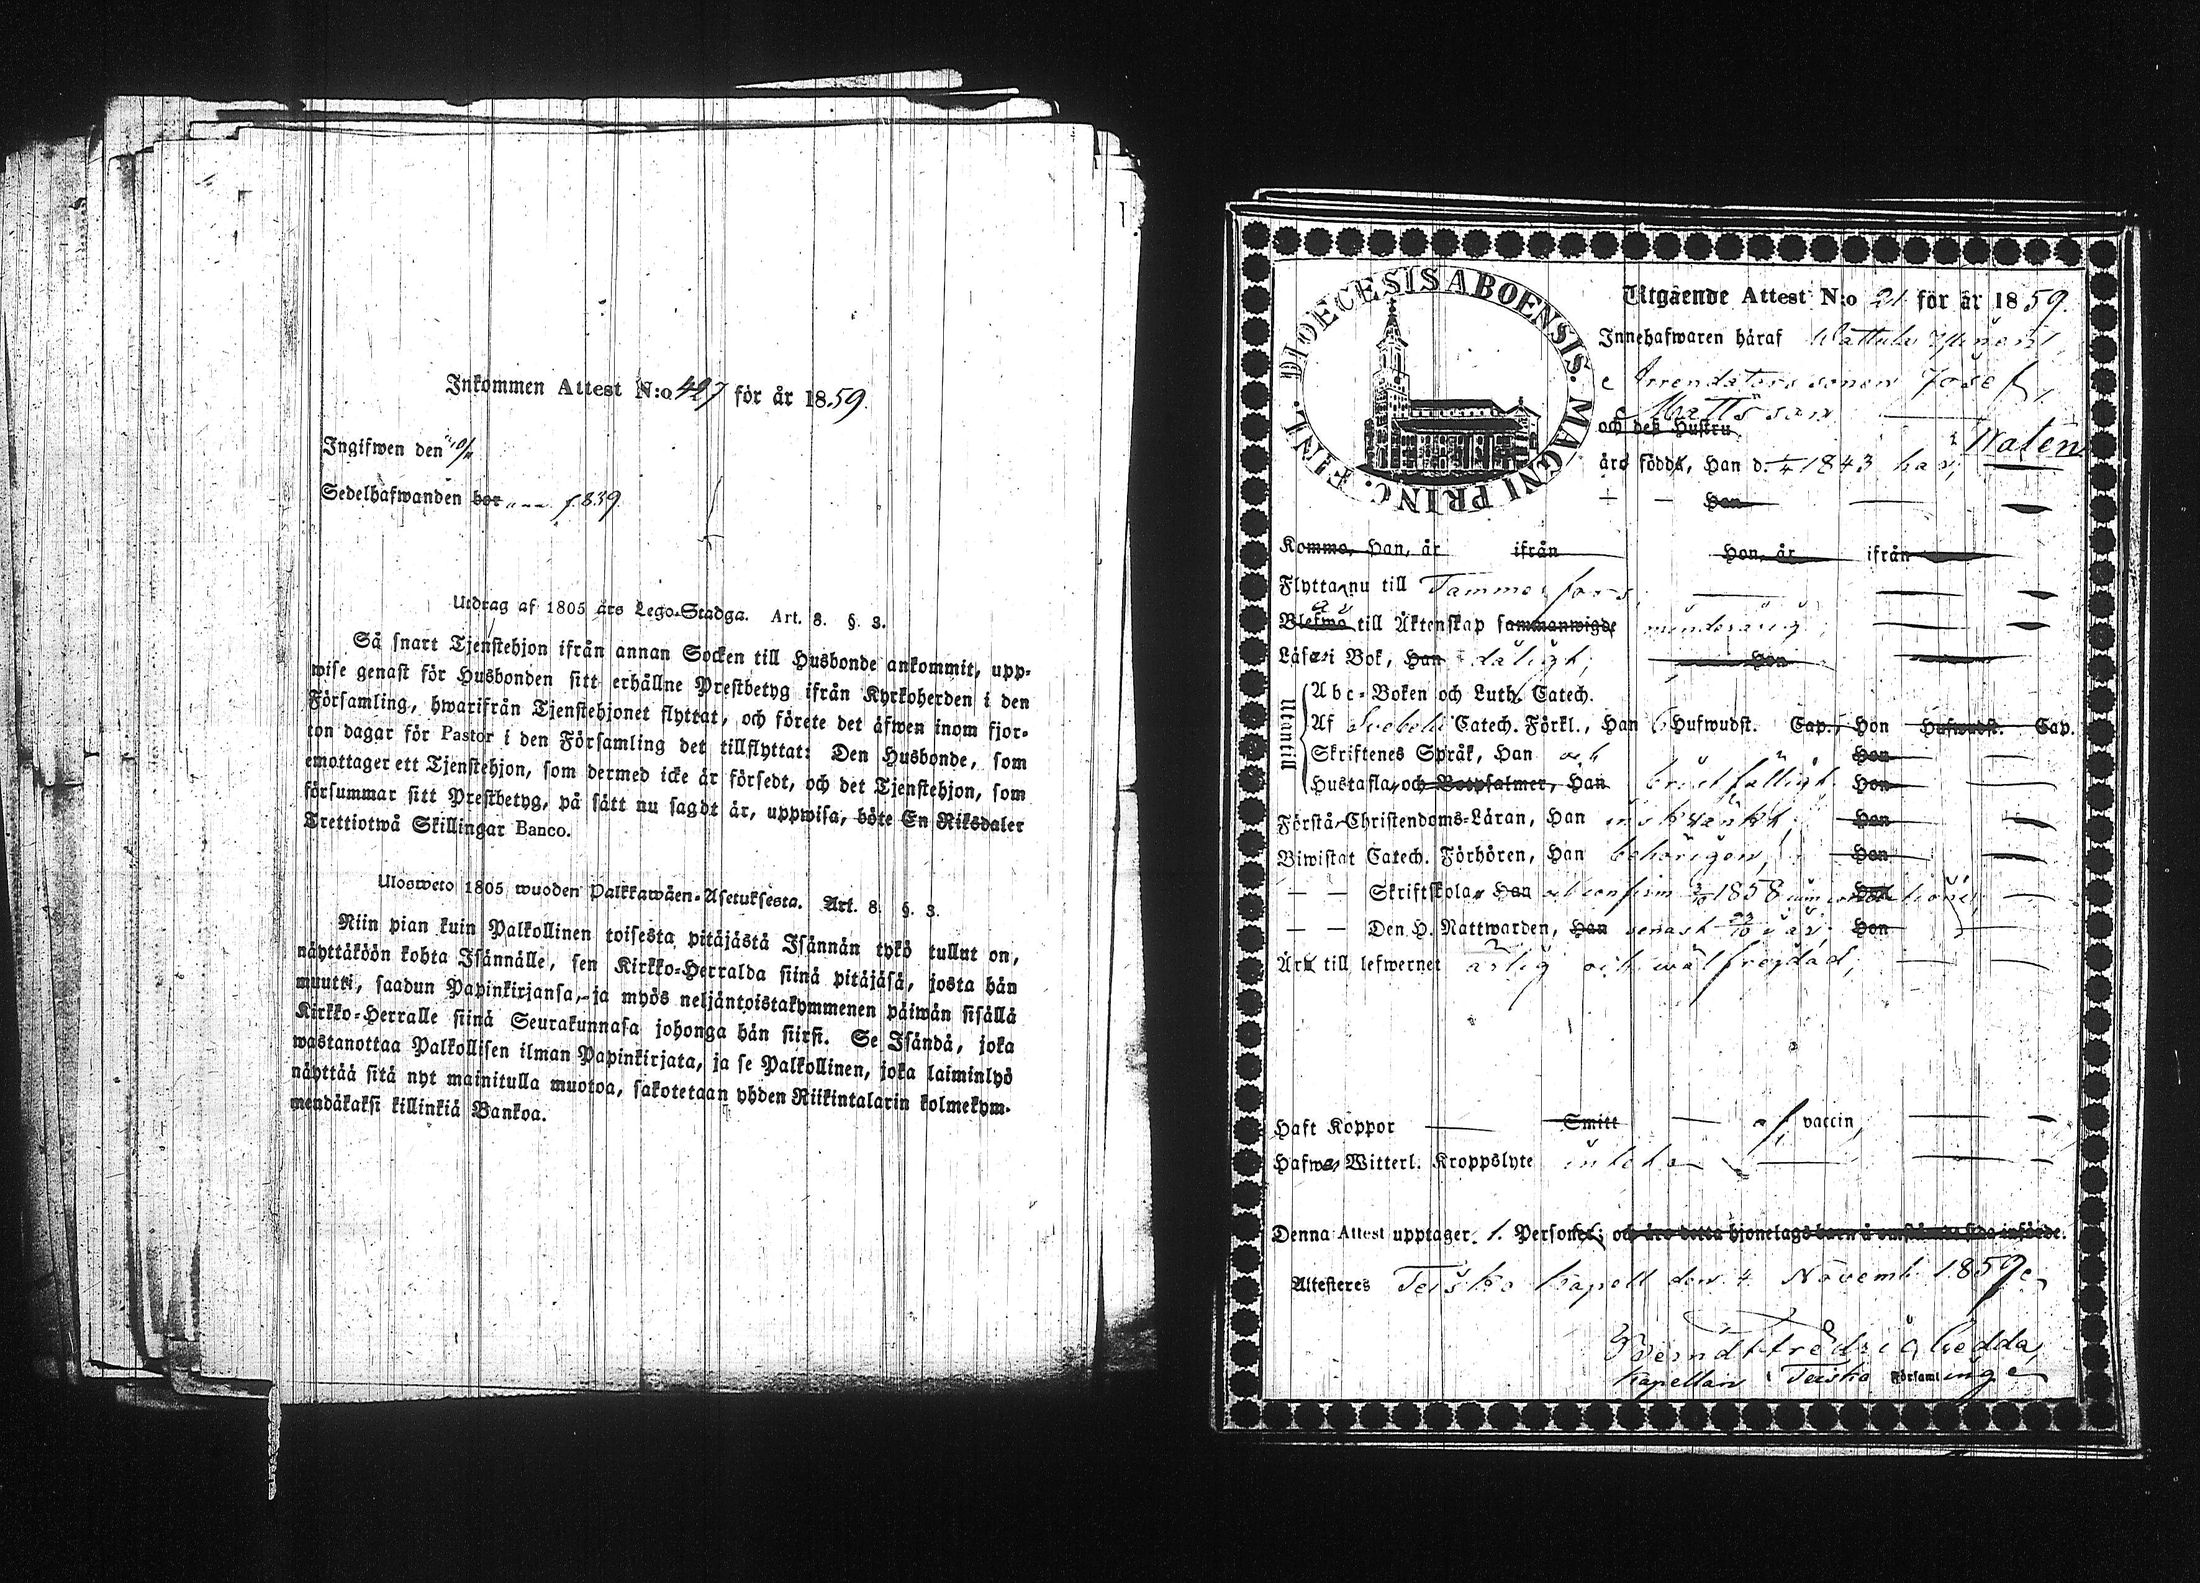 Inkommen Attest N:o 427 för år 1859.
Ingifwen den 10/11
Sedelhafwanden bor f. 839.
Utdrag af 1805 års Lego-Stadga. Art. 8. §. 3.
Så snart Tjenstehjon ifrån annan Socken till Husbonde ankommit, upp-
wise genast för Husbonden sitt erhållne Prestbetyg ifrån Kyrkoherden i den
Församling, hwarifrån Tjenstehjonet flyttat, och förete det äfwen inom fjor-
ton dagar för Pastor i den Församling det tillflyttat: Den Husbonde, som
emottager ett Tjenstehjon, som dermed icke är försedt, och det Tjenstehjon, som
försummar sitt Prestbetyg, på sätt nu sagdt är, uppwisa, böte En Riksdaler
Trettiotwå Skillingar Banco.
Ulosweto 1805 wuoden Palkkawäen-Asetuksesta. Art. 8. §. 3.
Niin pian kuin Palkollinen toisesta pitäjästä Isännän tykö tullut on,
näyttäköön kohta Isännälle, sen Kirkko-Herralda siinä pitäjäsä, josta hän
muutti, saadun Papinkirjansa, ja myös neljäntoistakymmenen päiwän sisällä
Kirkko-Herralle siinä Seurakunnasa johonga hän siirsi. Se Isändä, joka
wastanottaa Palkollisen ilman Papinkirjata, ja se Palkollinen, joka laiminlyö
näyttää sitä nyt mainitulla muotoa, sakotetaan yhden Riikintalarin kolmekym-
mendäkaksi killinkiä Bankoa.
DIOECESIS ABOENSIS. MAGNI PRINC. FINL.
Utgående Attest N:o 21 för år 1859.
Innehafwaren häraf Wattula
Arrendators sonen Josef
Mattsson
och des Hustru
i Walen
äro födde, Han d. 1/4 1843 här,
Hon
Komma, Han, år ifrån Hon, år ifrån
Flytta nu till Tammerfors
Blefwo till Äktenskap sammanwigde minderårig
Läsa i Bok, Han dåligt; Hon
Utantil
Abc-Boken och Luth. Catech.
Af Svebelii Catech. Förkl., Han 6 Hufwudst. Cap., Hon Hufwudst. Cap.
Skriftenes Språk, Han och Hon
Hustafla, och Botpsalmer, Han bristfälligt Hon
Förstå Christendoms-Läran, Han inskränkt; Hon
Biwistat Catech. Förhören, Han behörigen, Hon
— — Skriftskola, Han och confirm 1858 Hon
— — Den H. Nattwarden, Han senast 23/10 i år; Hon
Äro till lefwernet ärlig och wälfrejdad,
Haft Koppor Smitt af vaccin,
Hafwa Witterl. Kroppslyte intet
Denna Attest upptager 1. Personer; och äro detta hjonelags barn å omstående sida införde.
Attesteres Teisko Kapell den 4 Novemb 1859.
Berndt Fredric Gedda,
Kapellan i Teisko Församlinge